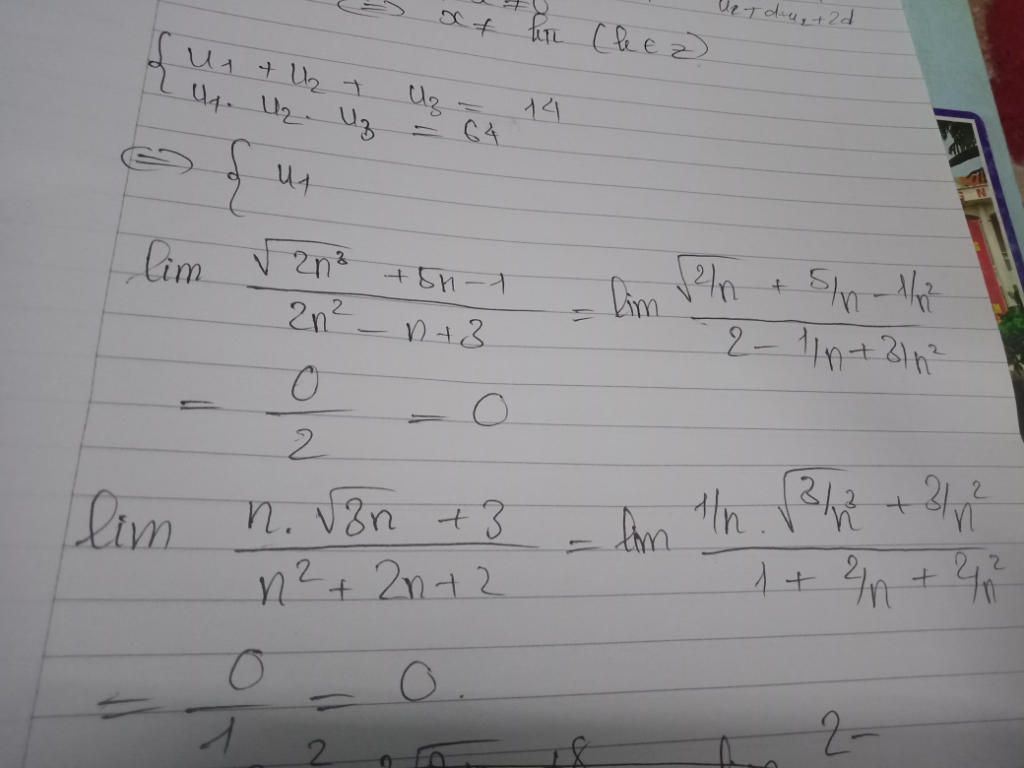 u₂+d=u₂+2d
⇔ x ≠ kπ (k ∈ Z)
{ u₁ + u₂ + u₃ = 14
u₁. u₂. u₃ = 64
⇔ { u₁
lim (√(2n³) + 5n − 1)/(2n² − n + 3) = lim (√(2/n) + 5/n − 1/n²)/(2 − 1/n + 3/n²)
= 0/2 = 0
lim (n.√(3n) + 3)/(n² + 2n + 2) = lim (1/n.√(3/n³) + 3/n²)/(1 + 2/n + 2/n²)
= 0/1 = 0.